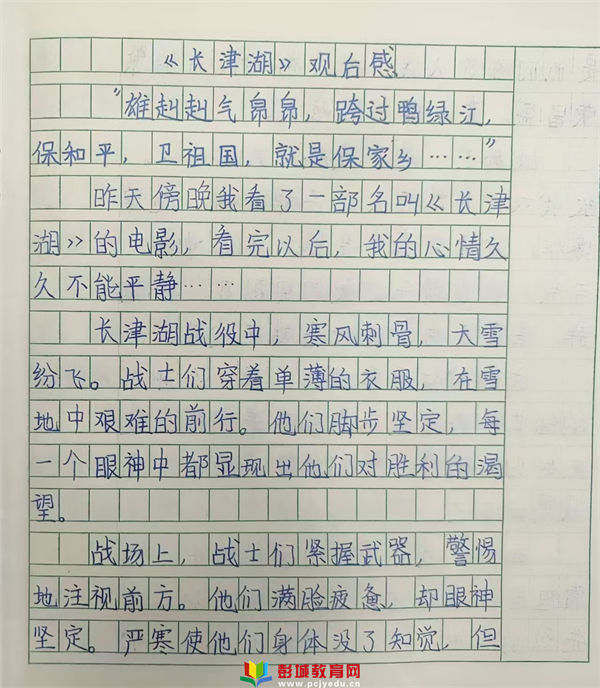 《长津湖》观后感
“雄赳赳气昂昂，跨过鸭绿江，
保和平，卫祖国，就是保家乡……”
昨天傍晚我看了一部名叫《长津
湖》的电影，看完以后，我的心情久
久不能平静……
长津湖战役中，寒风刺骨，大雪
纷飞。战士们穿着单薄的衣服，在雪
地中艰难的前行。他们脚步坚定，每
一个眼神中都显现出他们对胜利的渴
望。
战场上，战士们紧握武器，警惕
地注视前方。他们满脸疲惫，却眼神
坚定。严寒使他们身体没了知觉，但
彭城教育网
www.pcjyedu.cn